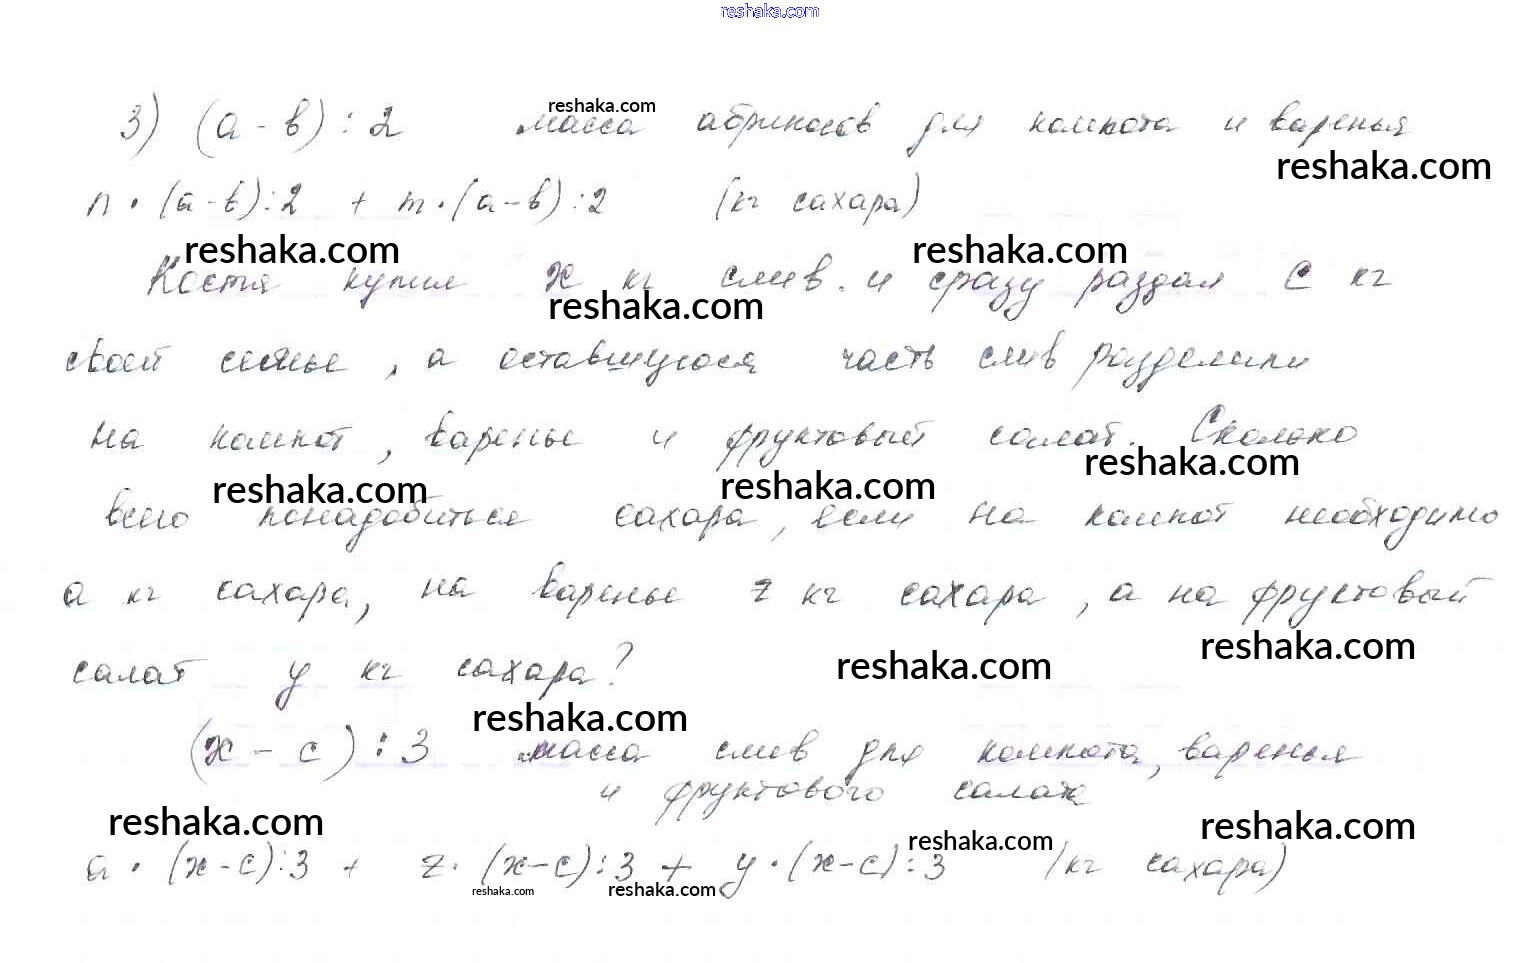 reshaka.com
3) (а - в) : 2 масса абрикосов для компота и варенья
reshaka.com
reshaka.com
n · (а - в) : 2 + m · (а - в) : 2 (кг сахара)
reshaka.com reshaka.com
Костя купил х кг слив. и сразу раздал с кг
reshaka.com
своей семье, а оставшуюся часть слив разделили
на компот, варенье и фруктовый салат. Сколько
reshaka.com
reshaka.com reshaka.com
всего понадобиться сахара, если на компот необходимо
а кг сахара, на варенье z кг сахара, а на фруктовый
reshaka.com reshaka.com
салат у кг сахара?
reshaka.com
(х - с) : 3 масса слив для компота, варенья
и фруктового салата
reshaka.com reshaka.com
reshaka.com
а · (х - с) : 3 + z · (х - с) : 3 + у · (х - с) : 3 (кг сахара)
reshaka.com reshaka.com